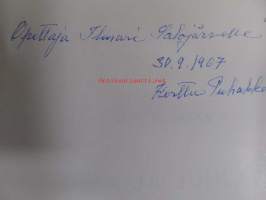 Opettaja Ilmari Salojärvelle
30.9.1967
Kerttu Puhakka